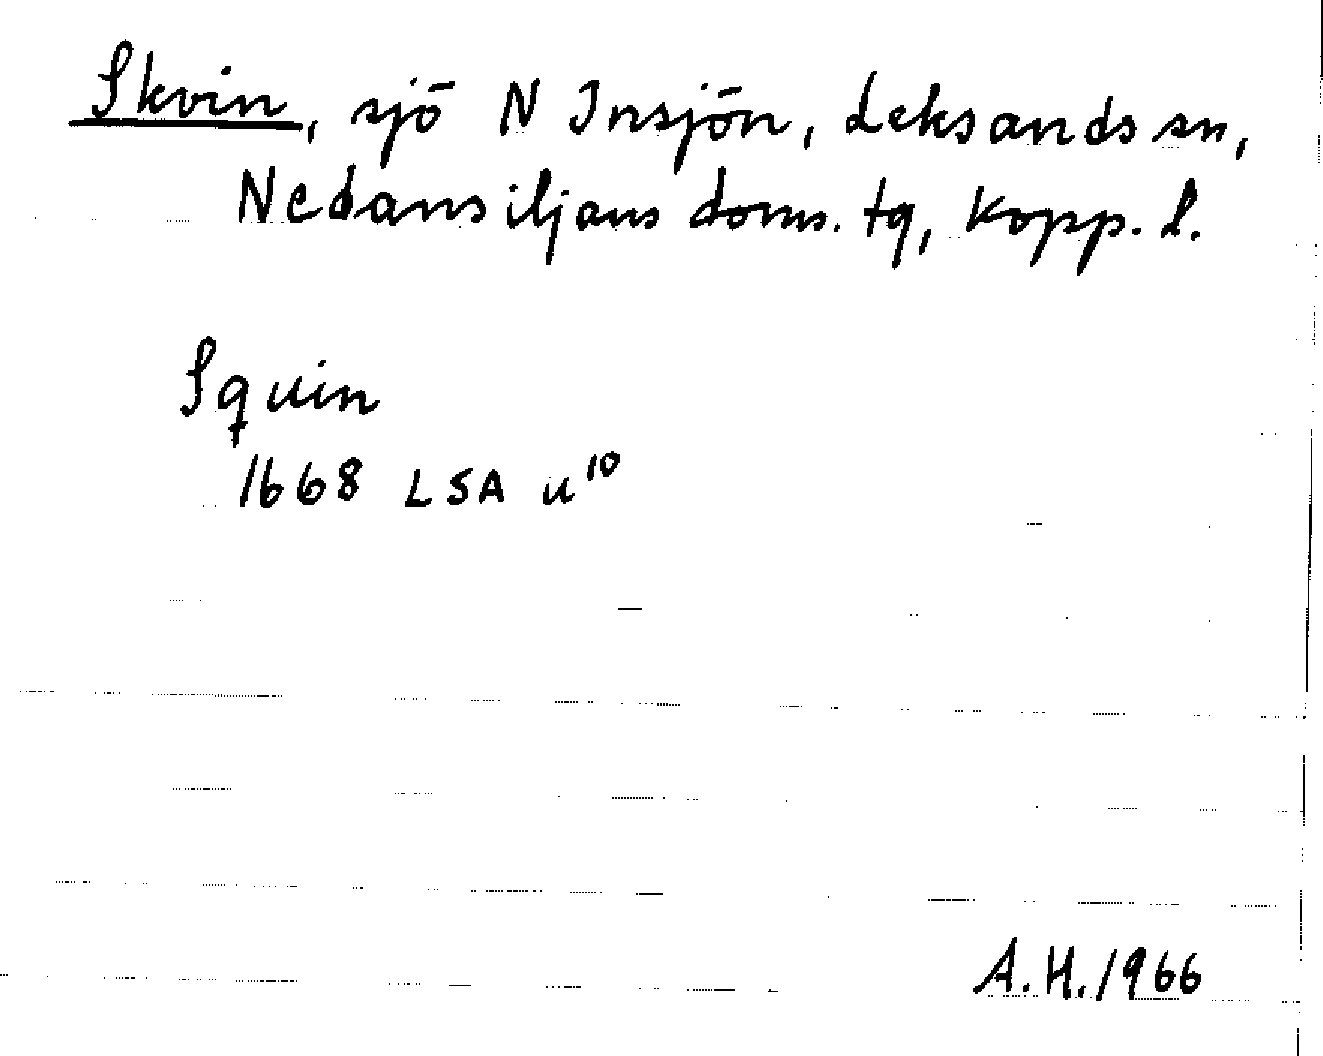 Skvin, sjö N Insjön, Leksands sn,
Nedansiljans doms. tg, Kopp. l.
Squin
1668 LSA u10
A.H. 1966